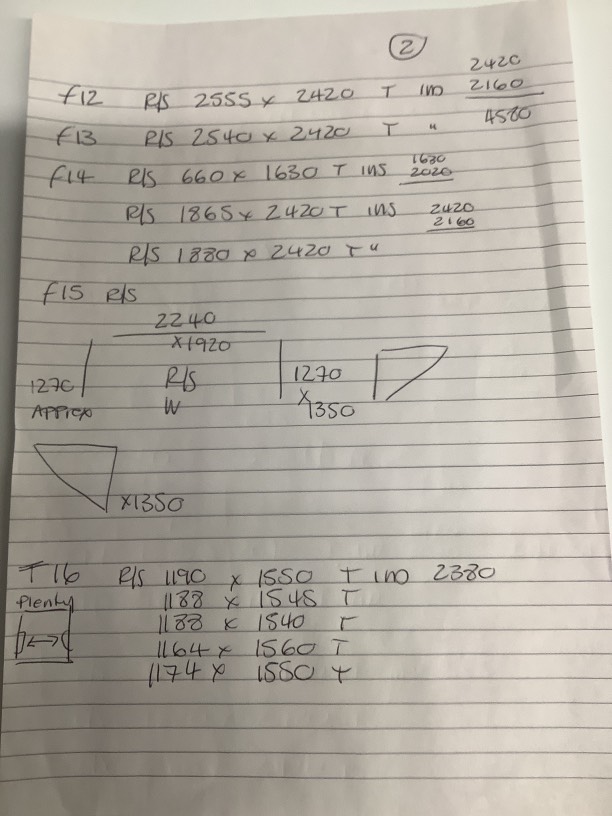 2
2420
f12 R/S 2555 x 2420 T ins 2160
4580
f13 R/S 2540 x 2420 T "
1630
f14 R/S 660 x 1630 T ins 2020
R/S 1865 x 2420 T ins 2420
2160
R/S 1880 x 2420 T "
f15 R/S
2240
x1920
1270 R/S 1270
APPROX W x
1350
x1350
T16 R/S 1190 x 1550 T ins 2380
Plenty 1188 x 1545 T
1188 x 1540 T
1164 x 1560 T
1174 x 1550 T